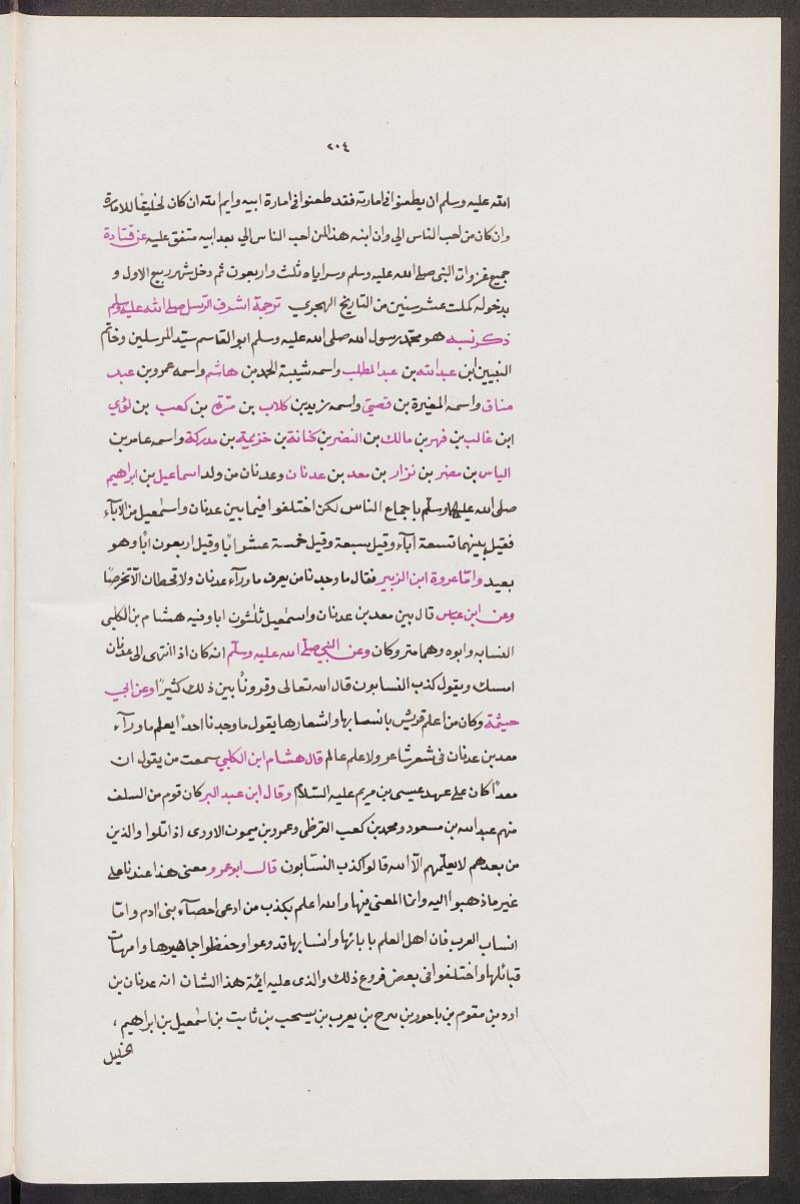 ٢٠٤
الله عليه وسلم ان يطعنوا في امارته فقد طعنوا في امارة ابيه وايم الله ان كان لخليقًا للامارة
وان كان من احب الناس الي وان ابنه هذا لمن احب الناس الي بعد ابيه متفق عليه عن قتادة
جميع غزوات النبي صلى الله عليه وسلم وسراياه ثلث واربعون ثم دخل شهر ربيع الاول و
بدخوله كملت عشر سنين من التاريخ الهجري ترجمة اشرف الرسل صلى الله عليه وسلم
ذكر نسبه هو محمد رسول الله صلى الله عليه وسلم ابو القاسم سيّد المرسلين وخاتم
النبيين ابن عبد الله بن عبد المطلب واسمه شيبة الحمد بن هاشم واسمه عمرو بن عبد
مناف واسمه المغيرة بن قصيّ واسمه زيد بن كلاب بن مرّة بن كعب بن لؤي
ابن غالب بن فهر بن مالك بن النضر بن كنانة بن خزيمة بن مدركة واسمه عامر بن
الياس بن مضر بن نزار بن معد بن عدنان وعدنان من ولد اسماعيل بن ابراهيم
صلى الله عليهما وسلّم باجماع الناس لكن اختلفوا فيما بين عدنان واسمٰعيل من الآباء
فقيل بينهما تسعة آباء وقيل سبعة وقيل خمسة عشر ابًا وقيل اربعون ابًا وهو
بعيد وامّا عروة ابن الزبير فقال ما وجدنا من يعرف ما ورآء عدنان ولا قحطان الّا تخرصًا
وعن ابن عباس قال بين معد بن عدنان واسمٰعيل ثلٰثون ابا وفيه هشام بن الكلبي
النسابه وابوه وهما متروكان وعن النبي صلّى الله عليه وسلّم انه كان اذا انتهى الى عدنان
امسك ويقول كذب النسابون قال الله تعالى وقرونًا بين ذلك كثيرًا وعن ابي
حيثمة وكان من اعلم قريش بانسابها واشعارها يقول ما وجدنا احدًا يعلم ما ورآء
معد بن عدنان في شعر شاعر ولا علم عالم قال هشام ابن الكلبي سمعت من يقول ان
معدًا كان على عهد عيسى بن مريم عليه السّلام وقال ابن عبد البر كان قوم من السلف
منهم عبد الله بن مسعود ومحمد بن كعب القرظي وعمرو بن ميمون الاودى اذا تلوا والذين
من بعدهم لا يعلّمهم الّا الله قالوا كذب النسّابون قال ابو عمرو معنى هذا عندنا على
غير ما ذهبوا اليه وانما المعنى فيها والله اعلم بكذب من ادعى احصآء بنى اٰدم وامّا
انساب العرب فان اهل العلم بابائها وانسابها قد وعوا وحفظوا جماهيرها وامهات
قبائلها واختلفوا في بعض فروع ذلك والذى عليه ائمة هذا الشان انه عدنان بن
ادد بن مقوم بن ناحور بن سرح بن يعرب بن يسحب بن ثابت بن اسمٰعيل بن ابراهيم ،
الخليل